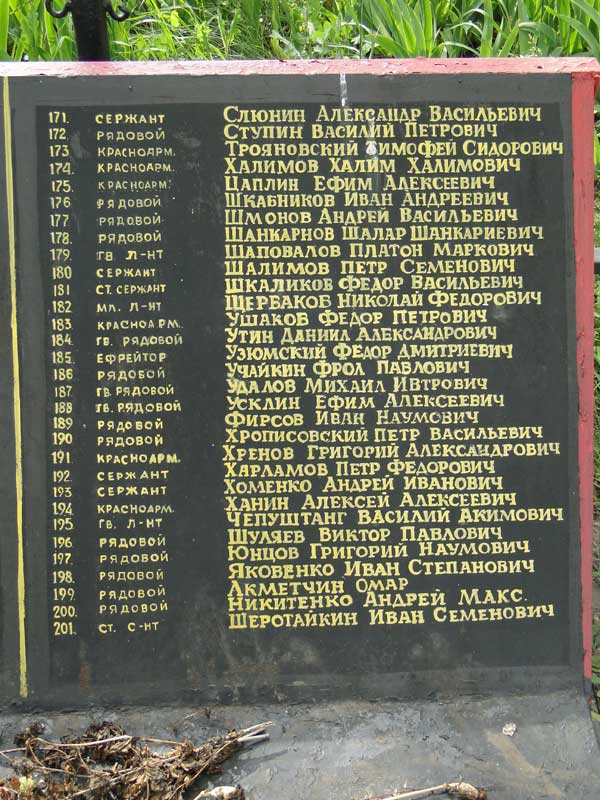 171. СЕРЖАНТ СЛЮНИН АЛЕКСАНДР ВАСИЛЬЕВИЧ
172. РЯДОВОЙ СТУПИН ВАСИЛИЙ ПЕТРОВИЧ
173 КРАСНОАРМ. ТРОЯНОВСКИЙ ТИМОФЕЙ СИДОРОВИЧ
174. КРАСНОАРМ. ХАЛИМОВ ХАЛИМ ХАЛИМОВИЧ
175. КРАСНОАРМ. ЦАПЛИН ЕФИМ АЛЕКСЕЕВИЧ
176 РЯДОВОЙ ШКАБНИКОВ ИВАН АНДРЕЕВИЧ
177. РЯДОВОЙ ШМОНОВ АНДРЕЙ ВАСИЛЬЕВИЧ
178. РЯДОВОЙ ШАНКАРНОВ ШАЛАР ШАНКАРИЕВИЧ
179. ГВ. Л-НТ ШАПОВАЛОВ ПЛАТОН МАРКОВИЧ
180 СЕРЖАНТ ШАЛИМОВ ПЕТР СЕМЕНОВИЧ
181 СТ. СЕРЖАНТ ШКАЛИКОВ ФЕДОР ВАСИЛЬЕВИЧ
182 МЛ. Л-НТ ЩЕРБАКОВ НИКОЛАЙ ФЕДОРОВИЧ
183. КРАСНОАРМ. УШАКОВ ФЕДОР ПЕТРОВИЧ
184. ГВ. РЯДОВОЙ УТИН ДАНИИЛ АЛЕКСАНДРОВИЧ
185. ЕФРЕЙТОР УЗЮМСКИЙ ФЕДОР ДМИТРИЕВИЧ
186 РЯДОВОЙ УЧАЙКИН ФРОЛ ПАВЛОВИЧ
187 ГВ. РЯДОВОЙ УДАЛОВ МИХАИЛ ИВТРОВИЧ
188 ГВ. РЯДОВОЙ УСКЛИН ЕФИМ АЛЕКСЕЕВИЧ
189 РЯДОВОЙ ФИРСОВ ИВАН НАУМОВИЧ
190 РЯДОВОЙ ХРОПИСОВСКИЙ ПЕТР ВАСИЛЬЕВИЧ
191. КРАСНОАРМ. ХРЕНОВ ГРИГОРИЙ АЛЕКСАНДРОВИЧ
192. СЕРЖАНТ ХАРЛАМОВ ПЕТР ФЕДОРОВИЧ
193 СЕРЖАНТ ХОМЕНКО АНДРЕЙ ИВАНОВИЧ
194. КРАСНОАРМ. ХАНИН АЛЕКСЕЙ АЛЕКСЕЕВИЧ
195. ГВ. Л-НТ ЧЕПУШТАНГ ВАСИЛИЙ АКИМОВИЧ
196 РЯДОВОЙ ШУЛЯЕВ ВИКТОР ПАВЛОВИЧ
197. РЯДОВОЙ ЮНЦОВ ГРИГОРИЙ НАУМОВИЧ
198. РЯДОВОЙ ЯКОВЕНКО ИВАН СТЕПАНОВИЧ
199. РЯДОВОЙ АКМЕТЧИН ОМАР
200. РЯДОВОЙ НИКИТЕНКО АНДРЕЙ МАКС.
201. СТ. С-НТ ШЕРОТАЙКИН ИВАН СЕМЕНОВИЧ